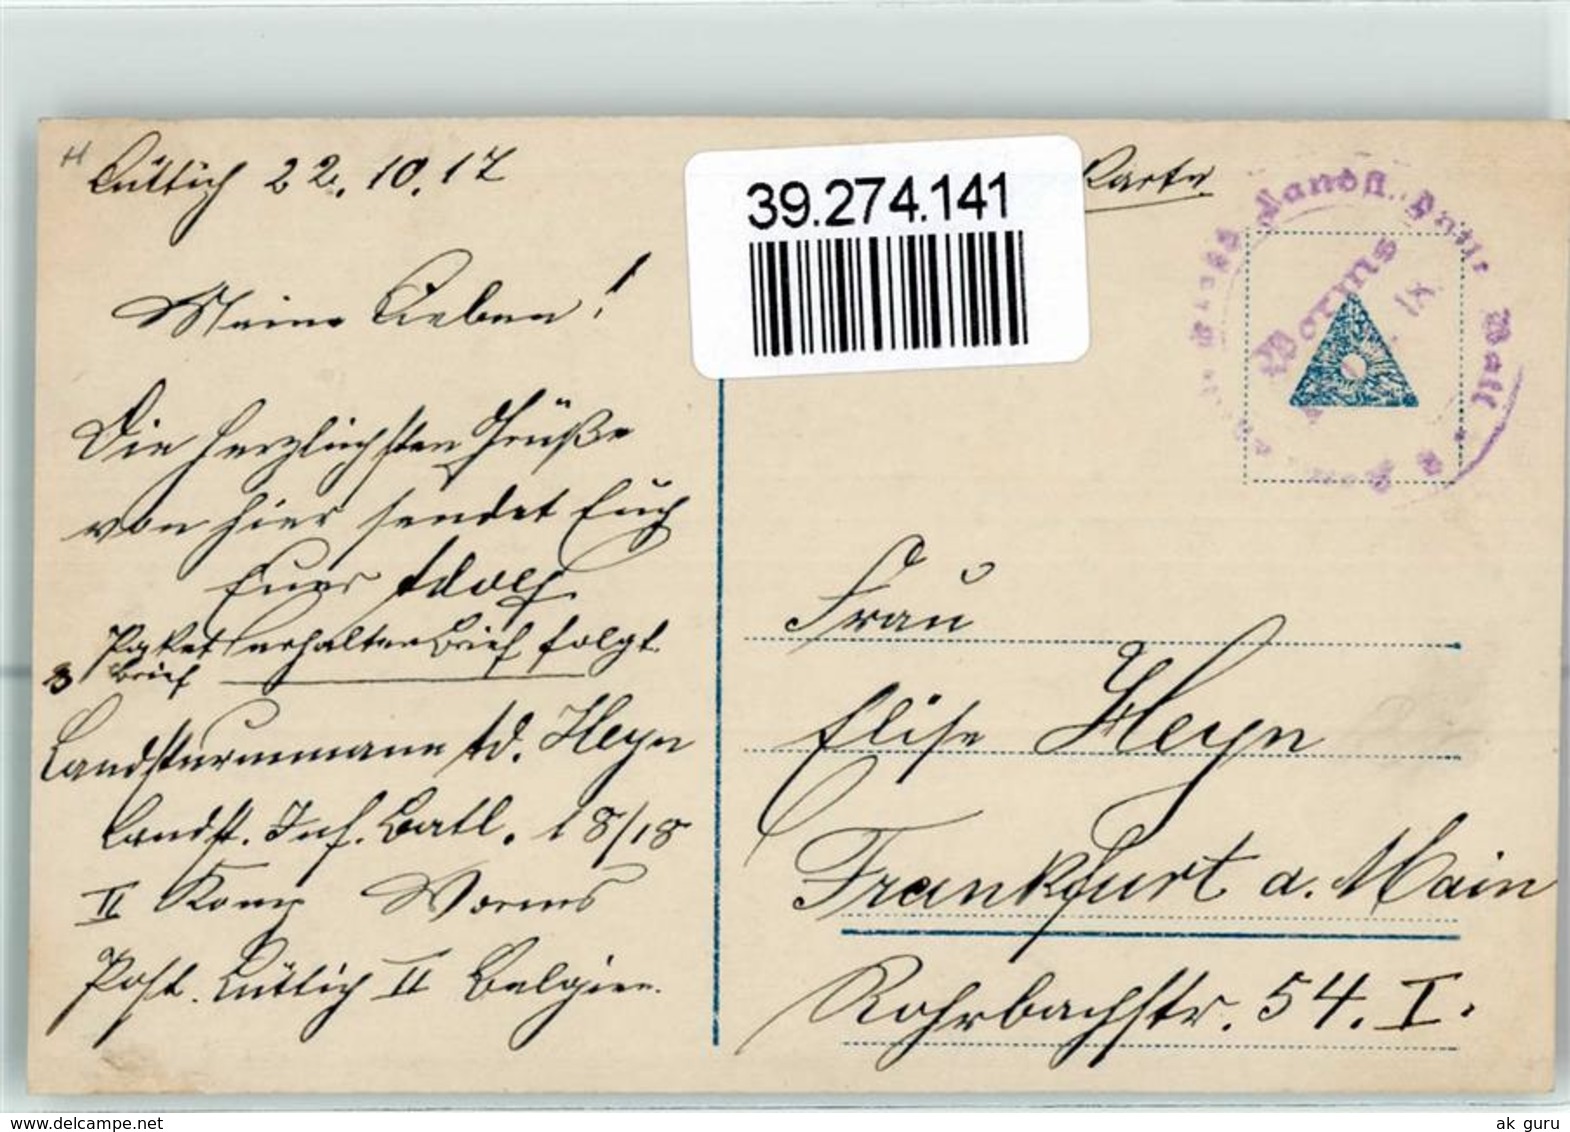 Lüttich 22.10.17
39.274.141
Karte
Meine Lieben!
Die herzlichsten Grüße
von hier sendet Euch
Euer Adolf
Paket erhalten Brief folgt.
Brief
Landsturmmann Ad. Heyn
Landst. Inf. Batl. 18/18
II Komp Worms
Post. Lüttich II Belgien.
Landst. Batl.
Worms
Frau
Elise Heyn
Frankfurt a. Main
Rohrbachstr. 54. I.
www.delcampe.net
ak guru